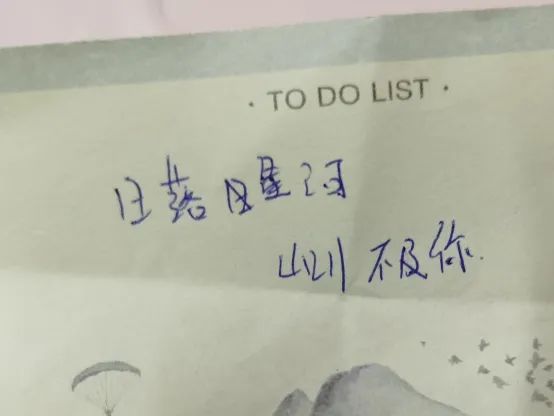 · TO DO LIST ·
日落日星河
山川不及你